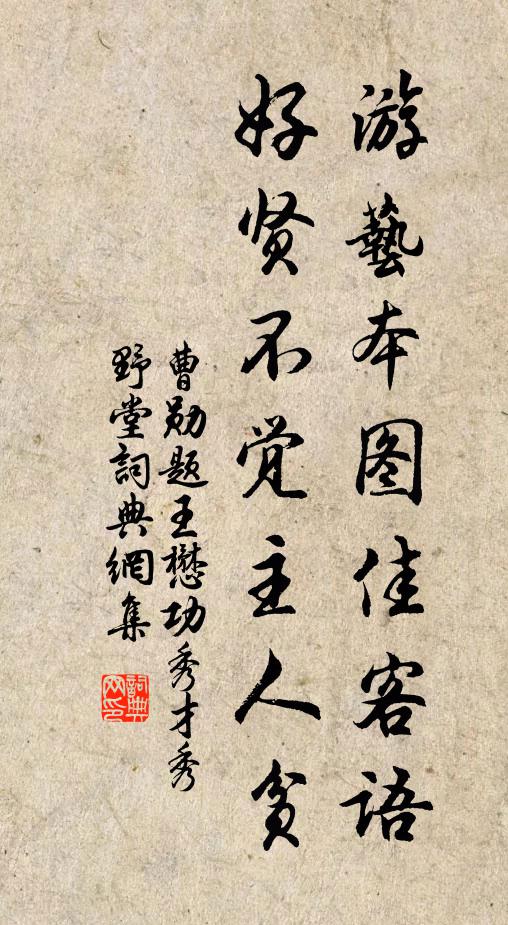 游藝本图佳客語
好贤不觉主人貧
曹勋题王懋功秀才秀
野堂詞典網集
詞典
网印